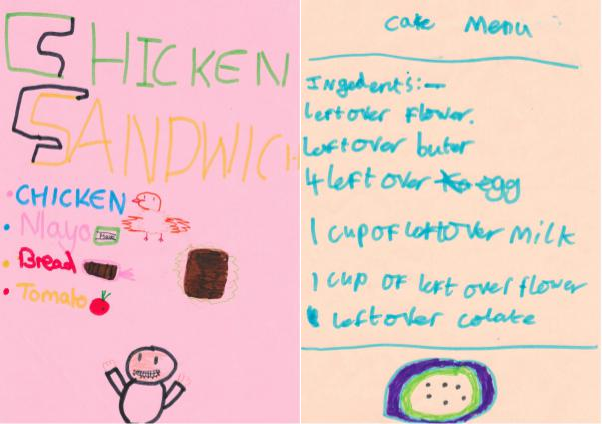 CHICKEN
SANDWICH
CHICKEN
Mayo
Bread
Tomato
Cake Menu
INgedent's:-
leftover Flower.
Leftover buter
4 left over egg
1 cup of leftover Milk
1 cup of left over flower
leftover colate